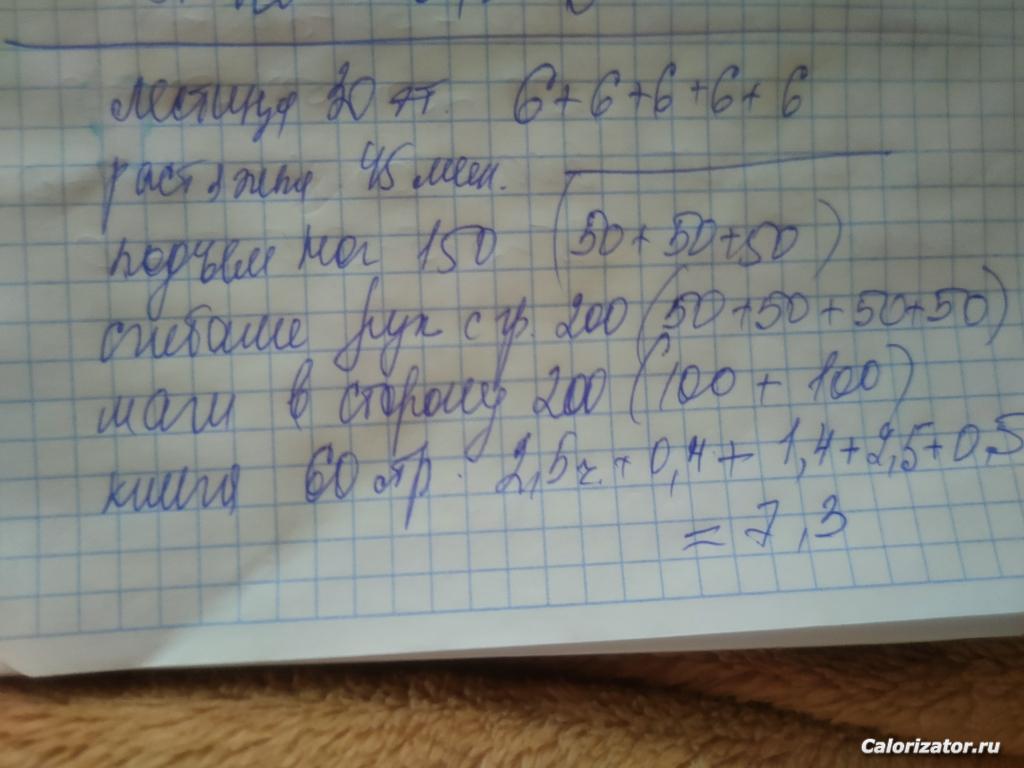 лестница 30 эт. 6+6+6+6+6
растяжка 45 мин.
подъем ног 150 (50+50+50)
сгибание рук с гр. 200 (50+50+50+50)
маги в сторону 200 (100 + 100)
книга 60 стр. 2,5 ч. + 0,4 + 1,4 + 2,5 + 0,5
= 7,3
Calorizator.ru